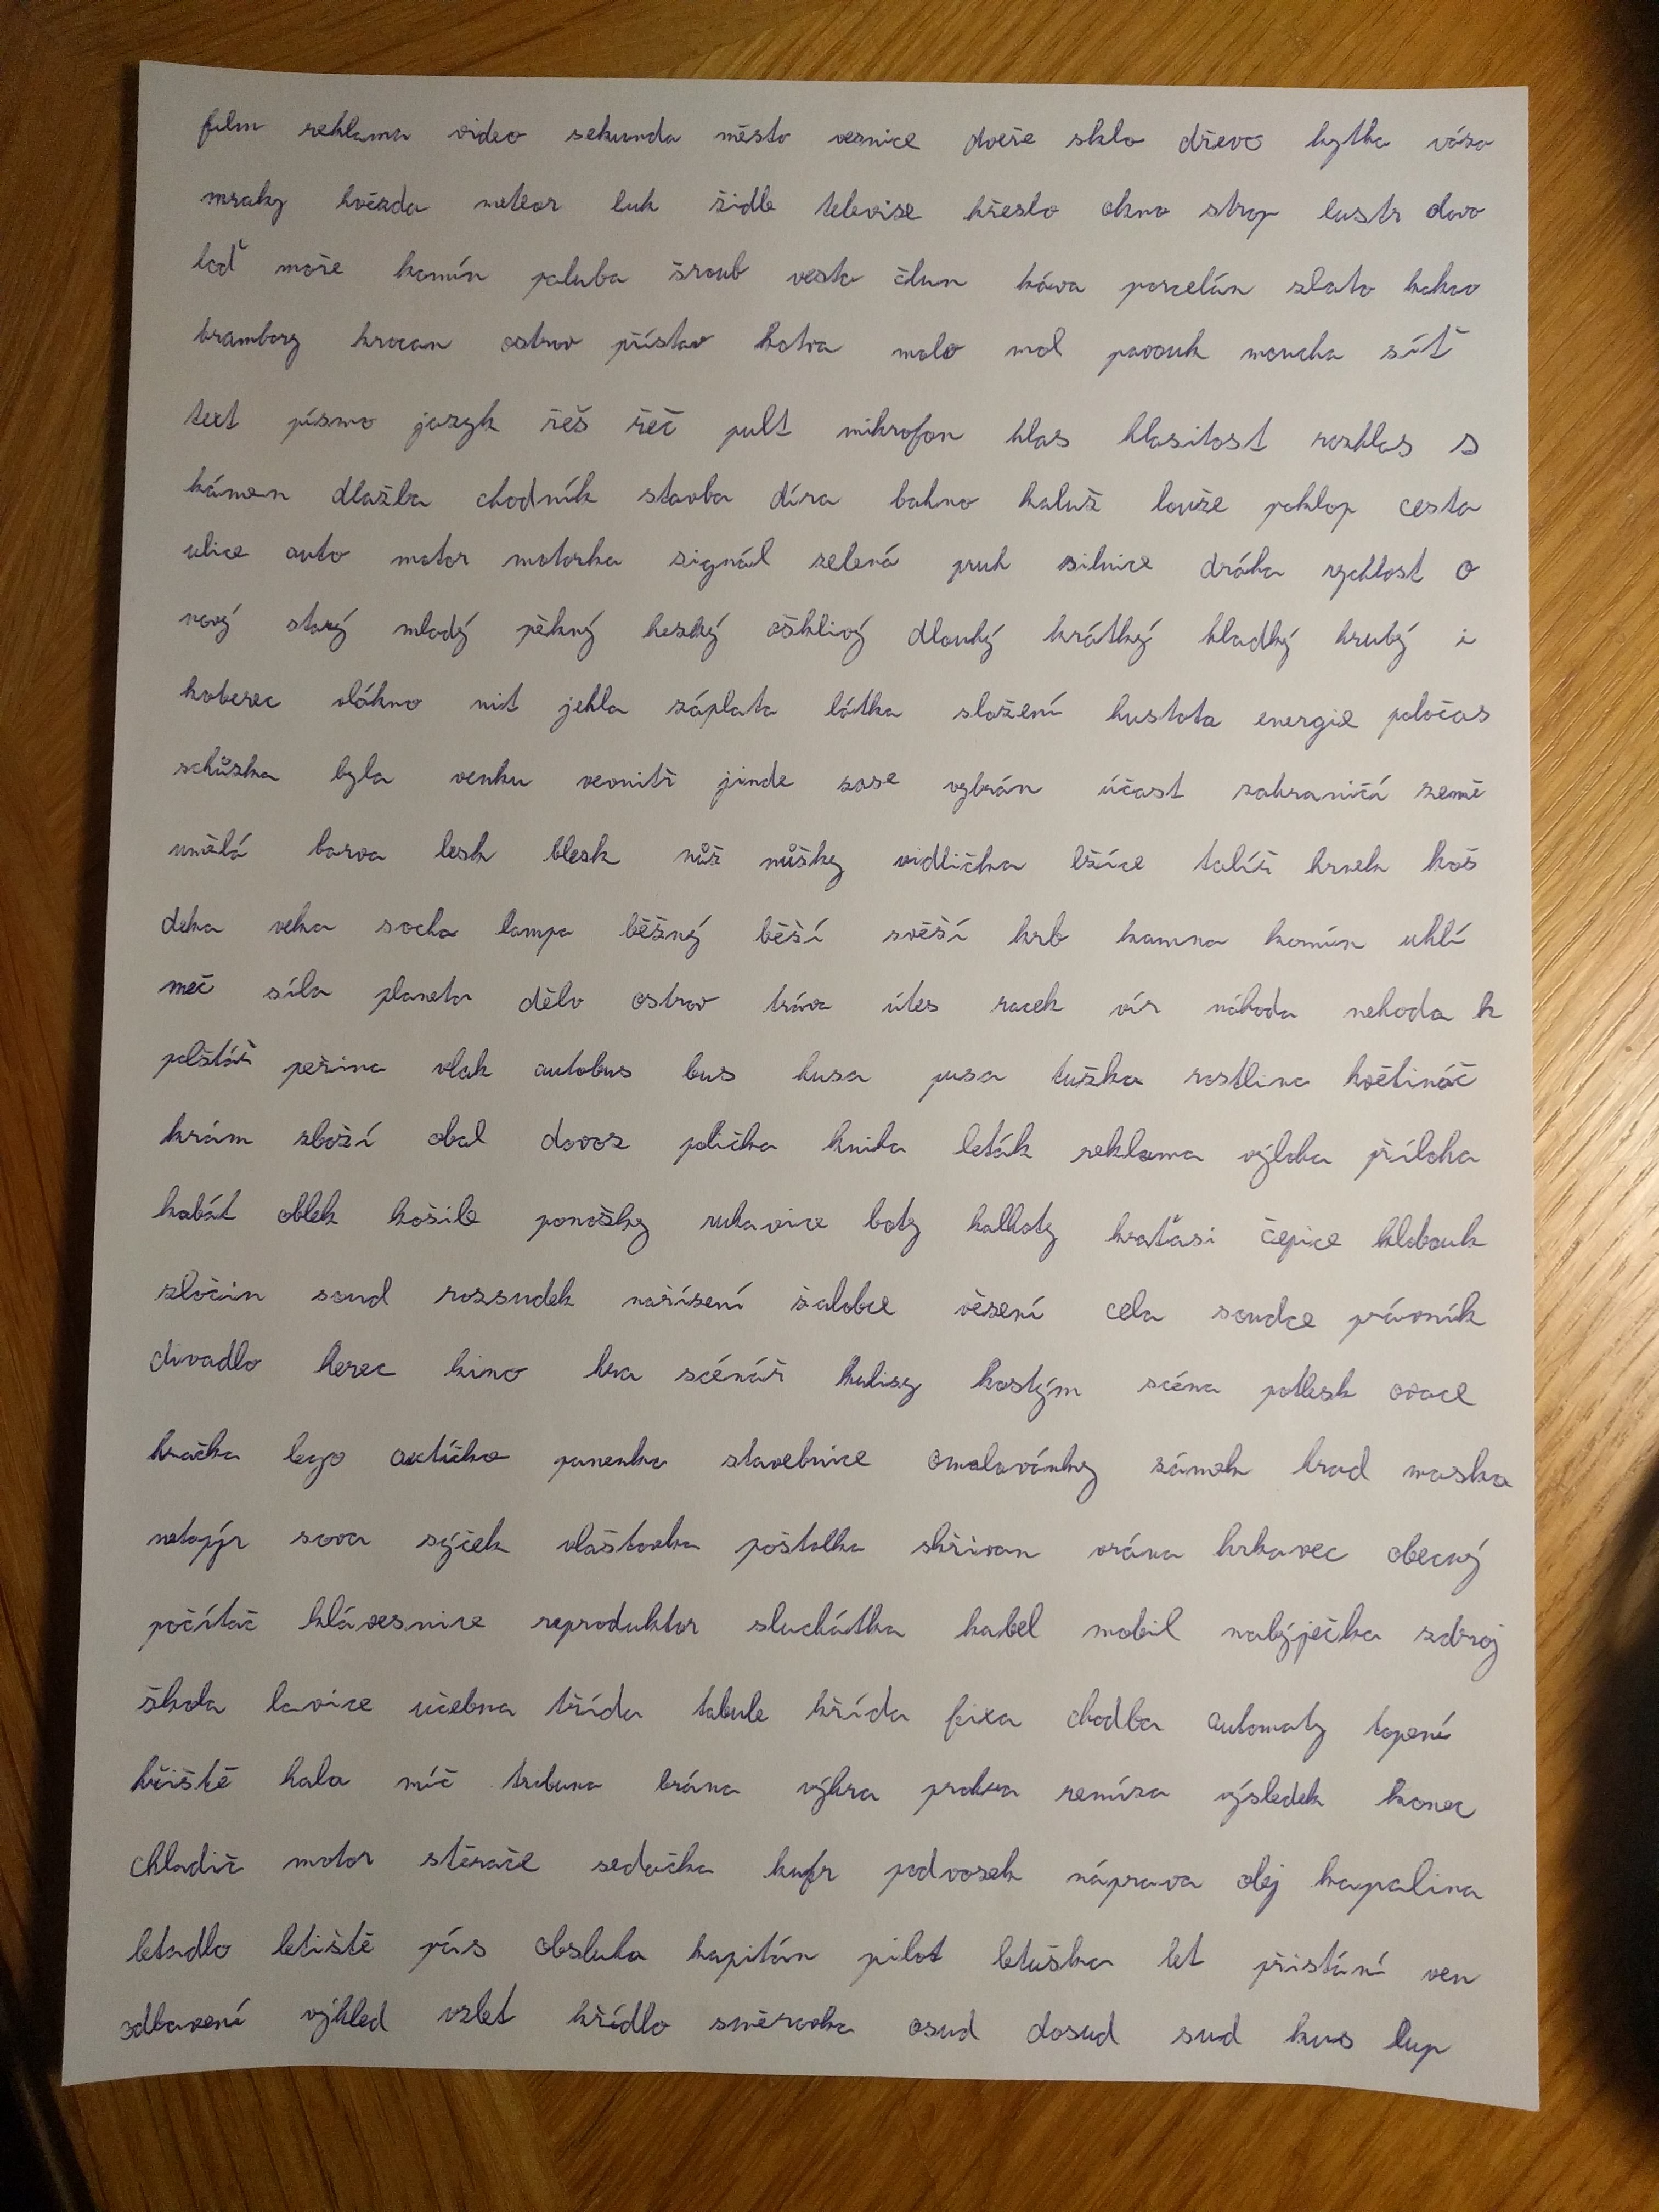 film reklama video sekunda město vesnice dveře sklo dřevo kytka váza
mraky hvězda meteor luk židle televize křeslo okno strop lustr dovo
loď moře komín paluba šroub vesta člun káva porcelán zlato kakao
brambory krocan ostrov přístav kotva molo mol pavouk moucha síť
text písmo jazyk řeš řeč pult mikrofon hlas hlasitost rozhlas s
kámen dlažba chodník stavba díra bahno kaluž louže poklop cesta
ulice auto motor motorka signál zelená pruh silnice dráha rychlost o
nový starý mladý pěkný hezký ošklivý dlouhý krátký hladký hrubý i
koberec vlákno nit jehla záplata látka složení hustota energie poločas
schůzka byla venku vevnitř jinde zase vybrán účast zahraničí země
umělá barva lesk blesk nůž nůžky vidlička lžíce talíř hrnek koš
deka veka socha lampa běžný běží svěží krb kamna komín uhlí
meč síla planeta dělo ostrov tráva útes racek vír náhoda nehoda k
polštář peřina vlak autobus bus husa pusa tužka rostlina květináč
krám zboží obal dovoz polička kniha leták reklama výloha příloha
kabát oblek košile ponožky rukavice boty kalhoty kraťasi čepice klobouk
zločin soud rozsudek nařízení žalobce vězení cela soudce právník
divadlo herec kino hra scénář kulisy kostým scéna potlesk ovace
hračka lego autíčko panenka stavebnice omalovánky zámek hrad maska
netopýr sova sýček vlaštovka poštolka skřivan vrána krkavec obecný
počítač klávesnice reproduktor sluchátka kabel mobil nabýječka zdroj
škola lavice učebna třída tabule křída fixa chodba automaty topení
hřiště hala míč tribuna brána výhra prohra remíza výsledek konec
chladič motor stěrače sedačka kufr podvozek náprava olej kapalina
letadlo letiště pás obsluha kapitán pilot letuška let přistání ven
odbavení výhled vzlet křídlo směrovka osud dosud sud kus lup